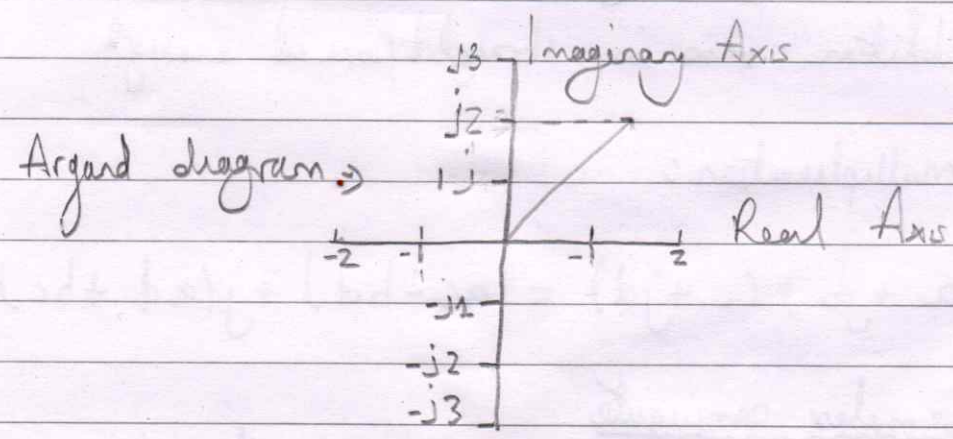 j3 Imaginary Axis
j2
Argand diagram :→ 1j
-2 -1 -1 2 Real Axis
-j1
-j2
-j3